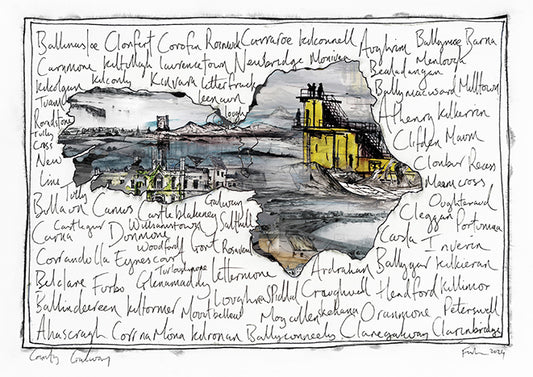 Ballinasloe Clonfert Corofin Rosmuc Carraroe Kilconnell Aughrim Ballymoe Barna
Carnmore Kiltullagh Laurencetown Newbridge Monivea Menlough
Bealadangan
Kilcolgan Kilconly Kinvara Letterfrack Ballymacward Milltown
Tuam Leenaun Athenry Kilkerrin
Roundstone Lough
Tully Clifden Maam
Cross
New Clonbur Recess
Line Maam cross
Tully Galway Oughterard
Bullaun Camus Castleblakeney Cleggan Portumna
Castlegar Williamstown Salthill
Carna Dunmore Costa Inverin
Woodford Gort
Corrandulla Eyrecourt Ballygar Kilkieran
Turloughmore
Belclare Furbo Glenamaddy Lettermore Ardrahan
Loughrea Spiddal Craughwell Headford Killimor
Ballinderreen Kiltormer Mountbellew Moycullen Oranmore Peterswell
Ahascragh Corr na Móna Kilronan Ballyconneely Claregalway Clarinbridge
County Galway 2024